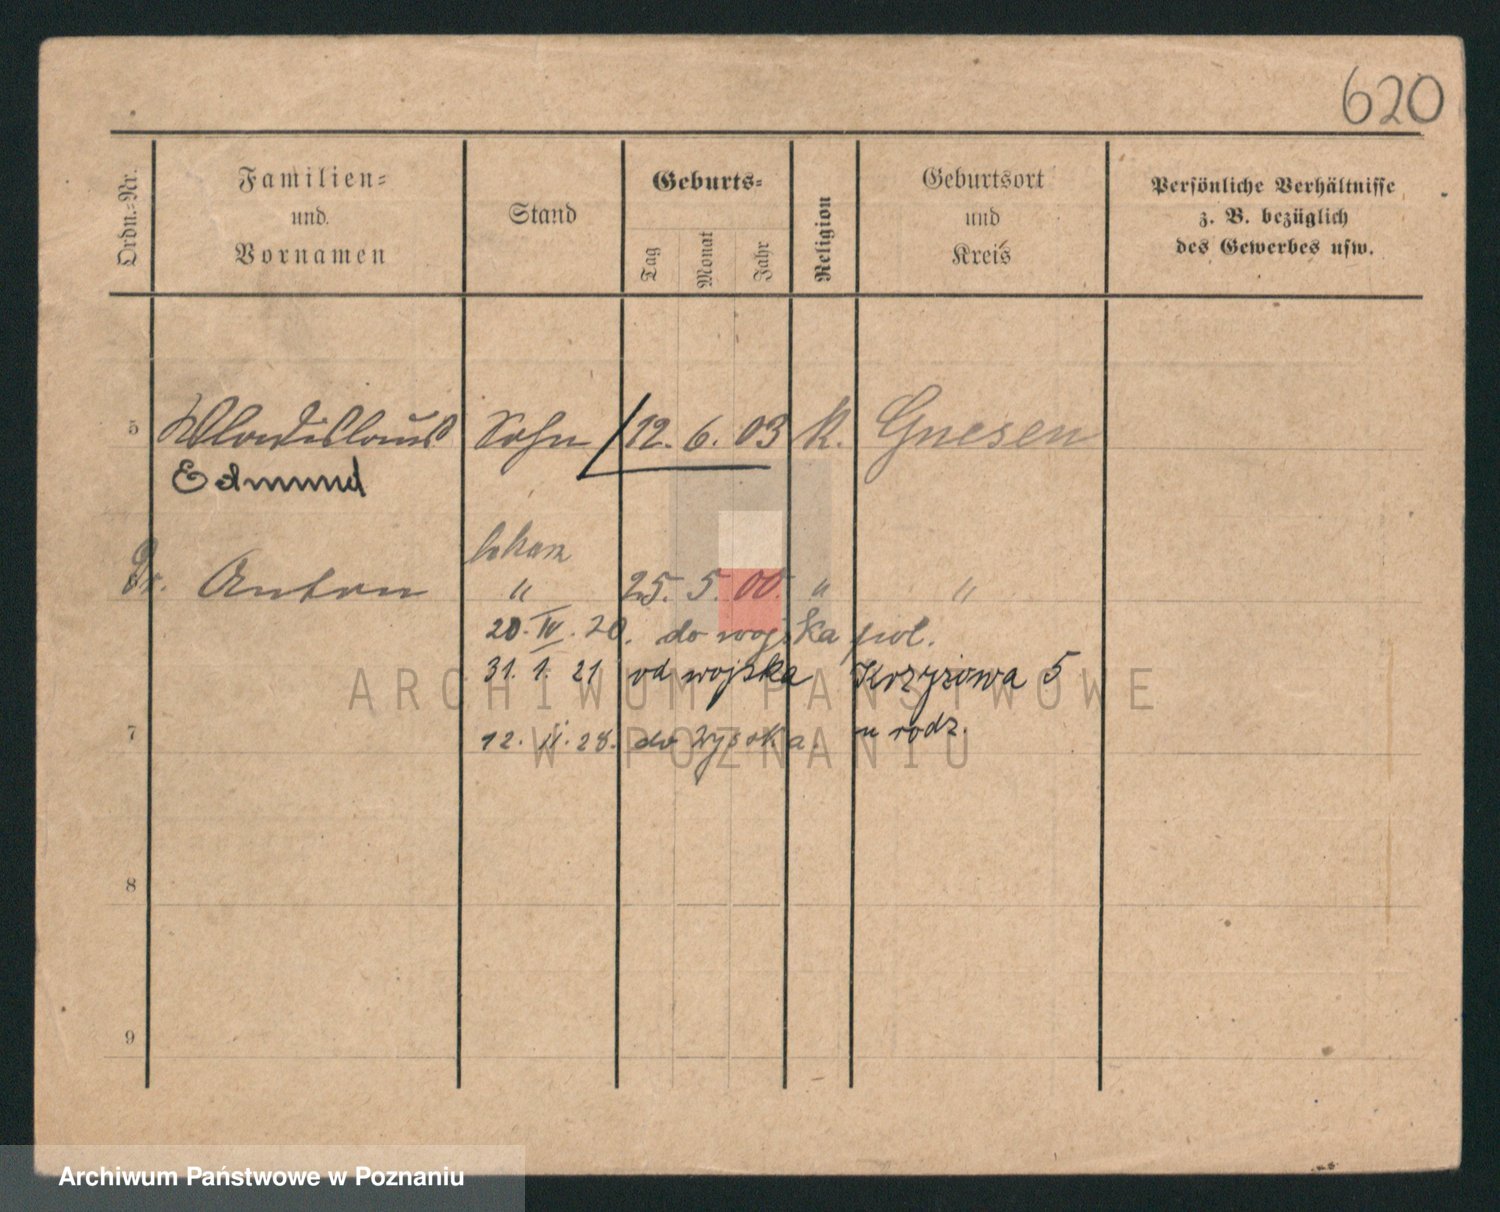 620
Ordn.=Nr.
Familien=
und
Vornamen
Stand
Geburts=
Tag
Monat
Jahr
Religion
Geburtsort
und
Kreis
Persönliche Verhältnisse
z. B. bezüglich
des Gewerbes usw.
5 Wladislaus Sohn 12. 6. 03 K. Gnesen
Edmund
lekarz
Dr. Anton " 25. 5. 00. " "
20. IV. 20. do wojska pol.
31. 1. 21 od wojska Krzyżowa 5
u rodz.
7 12. II. 28. do Wysoka.
8
9
ARCHIWUM PAŃSTWOWE
W POZNANIU
Archiwum Państwowe w Poznaniu